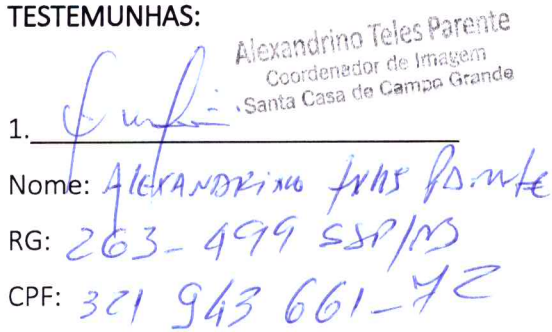 TESTEMUNHAS:
Alexandrino Teles Parente
Coordenador de Imagem
Santa Casa de Campo Grande
1.
Nome: ALEXANDRINO Teles Parente
RG: 263-499 SSP/MS
CPF: 321 943 661-72